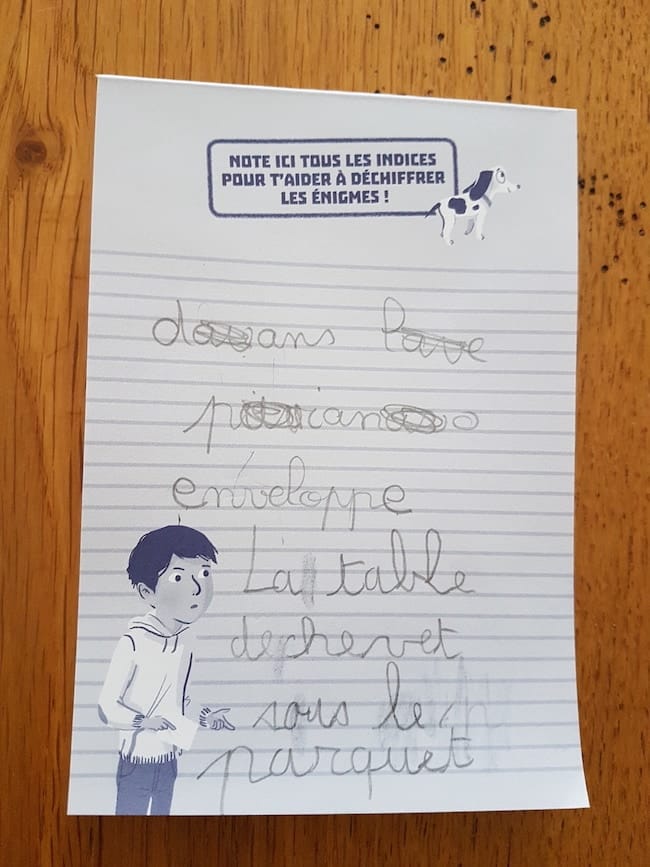 NOTE ICI TOUS LES INDICES
POUR T'AIDER À DÉCHIFFRER
LES ÉNIGMES !
dans le
piano
enveloppe
La table
de chevet
sous le
parquet